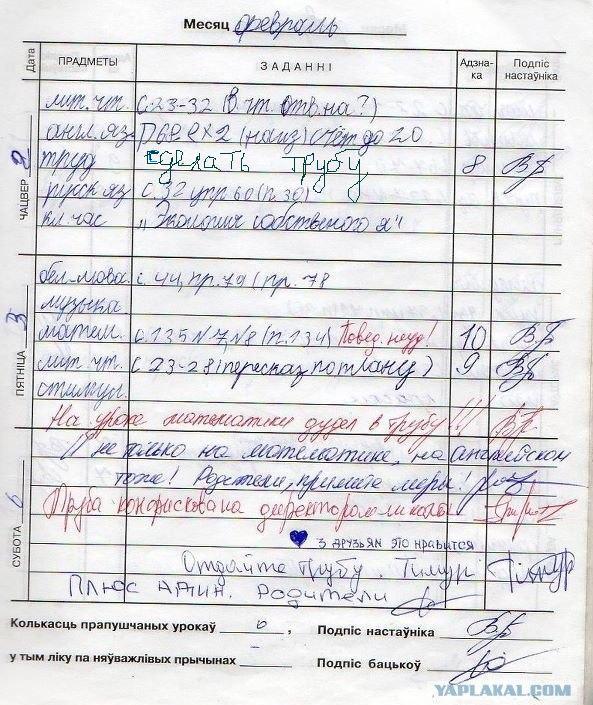 Месяц февраль
Дата ПРАДМЕТЫ ЗАДАННІ Адзнака Подпіс настаўніка
ЧАЦВЕР 2
лит. чт. с. 23-32 (В. чт. отв. на ?)
англ. яз. счёт до 20
труд сделать трубу 8
с. 32 упр. 60 (п. 30)
кл. час собственого я"
ПЯТНІЦА 3
бел. мова. с. 44, пр. 79 (пр. 78
музыка.
матем. с. 135 №7, №8 (п. 134) Повед. неуд! 10
лит. чт. с 23-28 (пересказ по плану) 9
На уроке математики дудел в трубу!!!
СУБОТА 6
И не только на математике, на английском
тоже! Родители, примите меры!
Труба конфискована директором школы!
3 друзьям это нравится
Отдайте трубу. Тимур
Плюс адин. Родители
Колькасць прапушчаных урокаў 6 , Подпіс настаўніка
у тым ліку па няўважлівых прычынах — Подпіс бацькоў
YAPLAKAL.COM